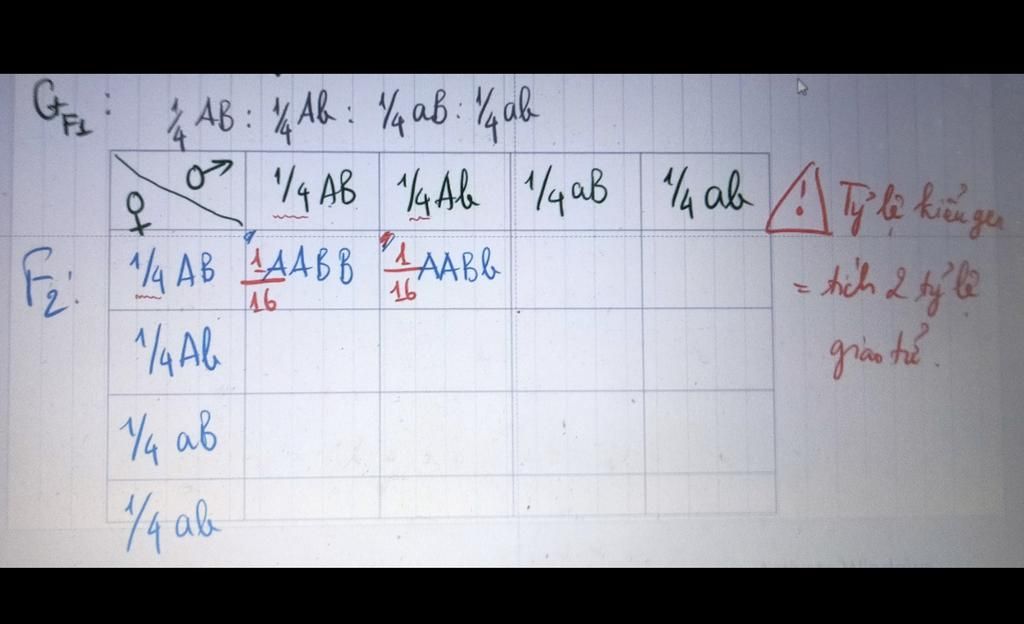 G_F1 : 1/4 AB : 1/4 Ab : 1/4 aB : 1/4 ab
♀ ♂ 1/4 AB 1/4 Ab 1/4 aB 1/4 ab
F2: 1/4 AB 1/16 AABB 1/16 AABb
1/4 Ab
1/4 aB
1/4 ab
! Tỷ lệ kiểu gen
= tích 2 tỷ lệ
giao tử.